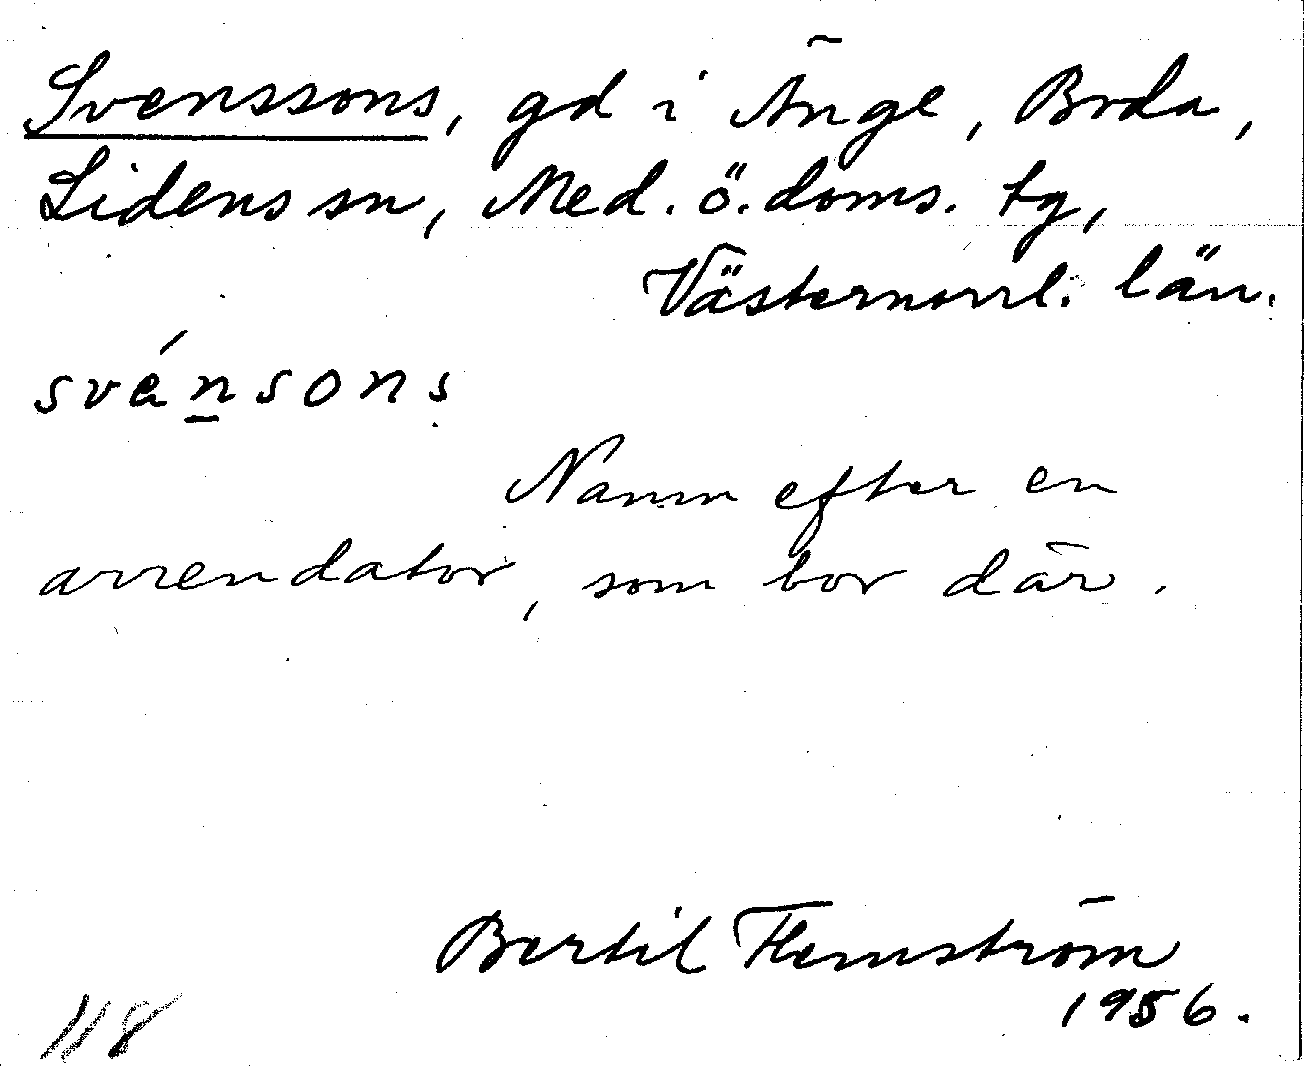 Svenssons, gd i Änge, Boda,
Lidens sn, Med. ö. doms. tg,
Västernorrl. län.
svénsons
Namn efter en
arrendator, som bor där.
Bertil Flemström
1956.
118